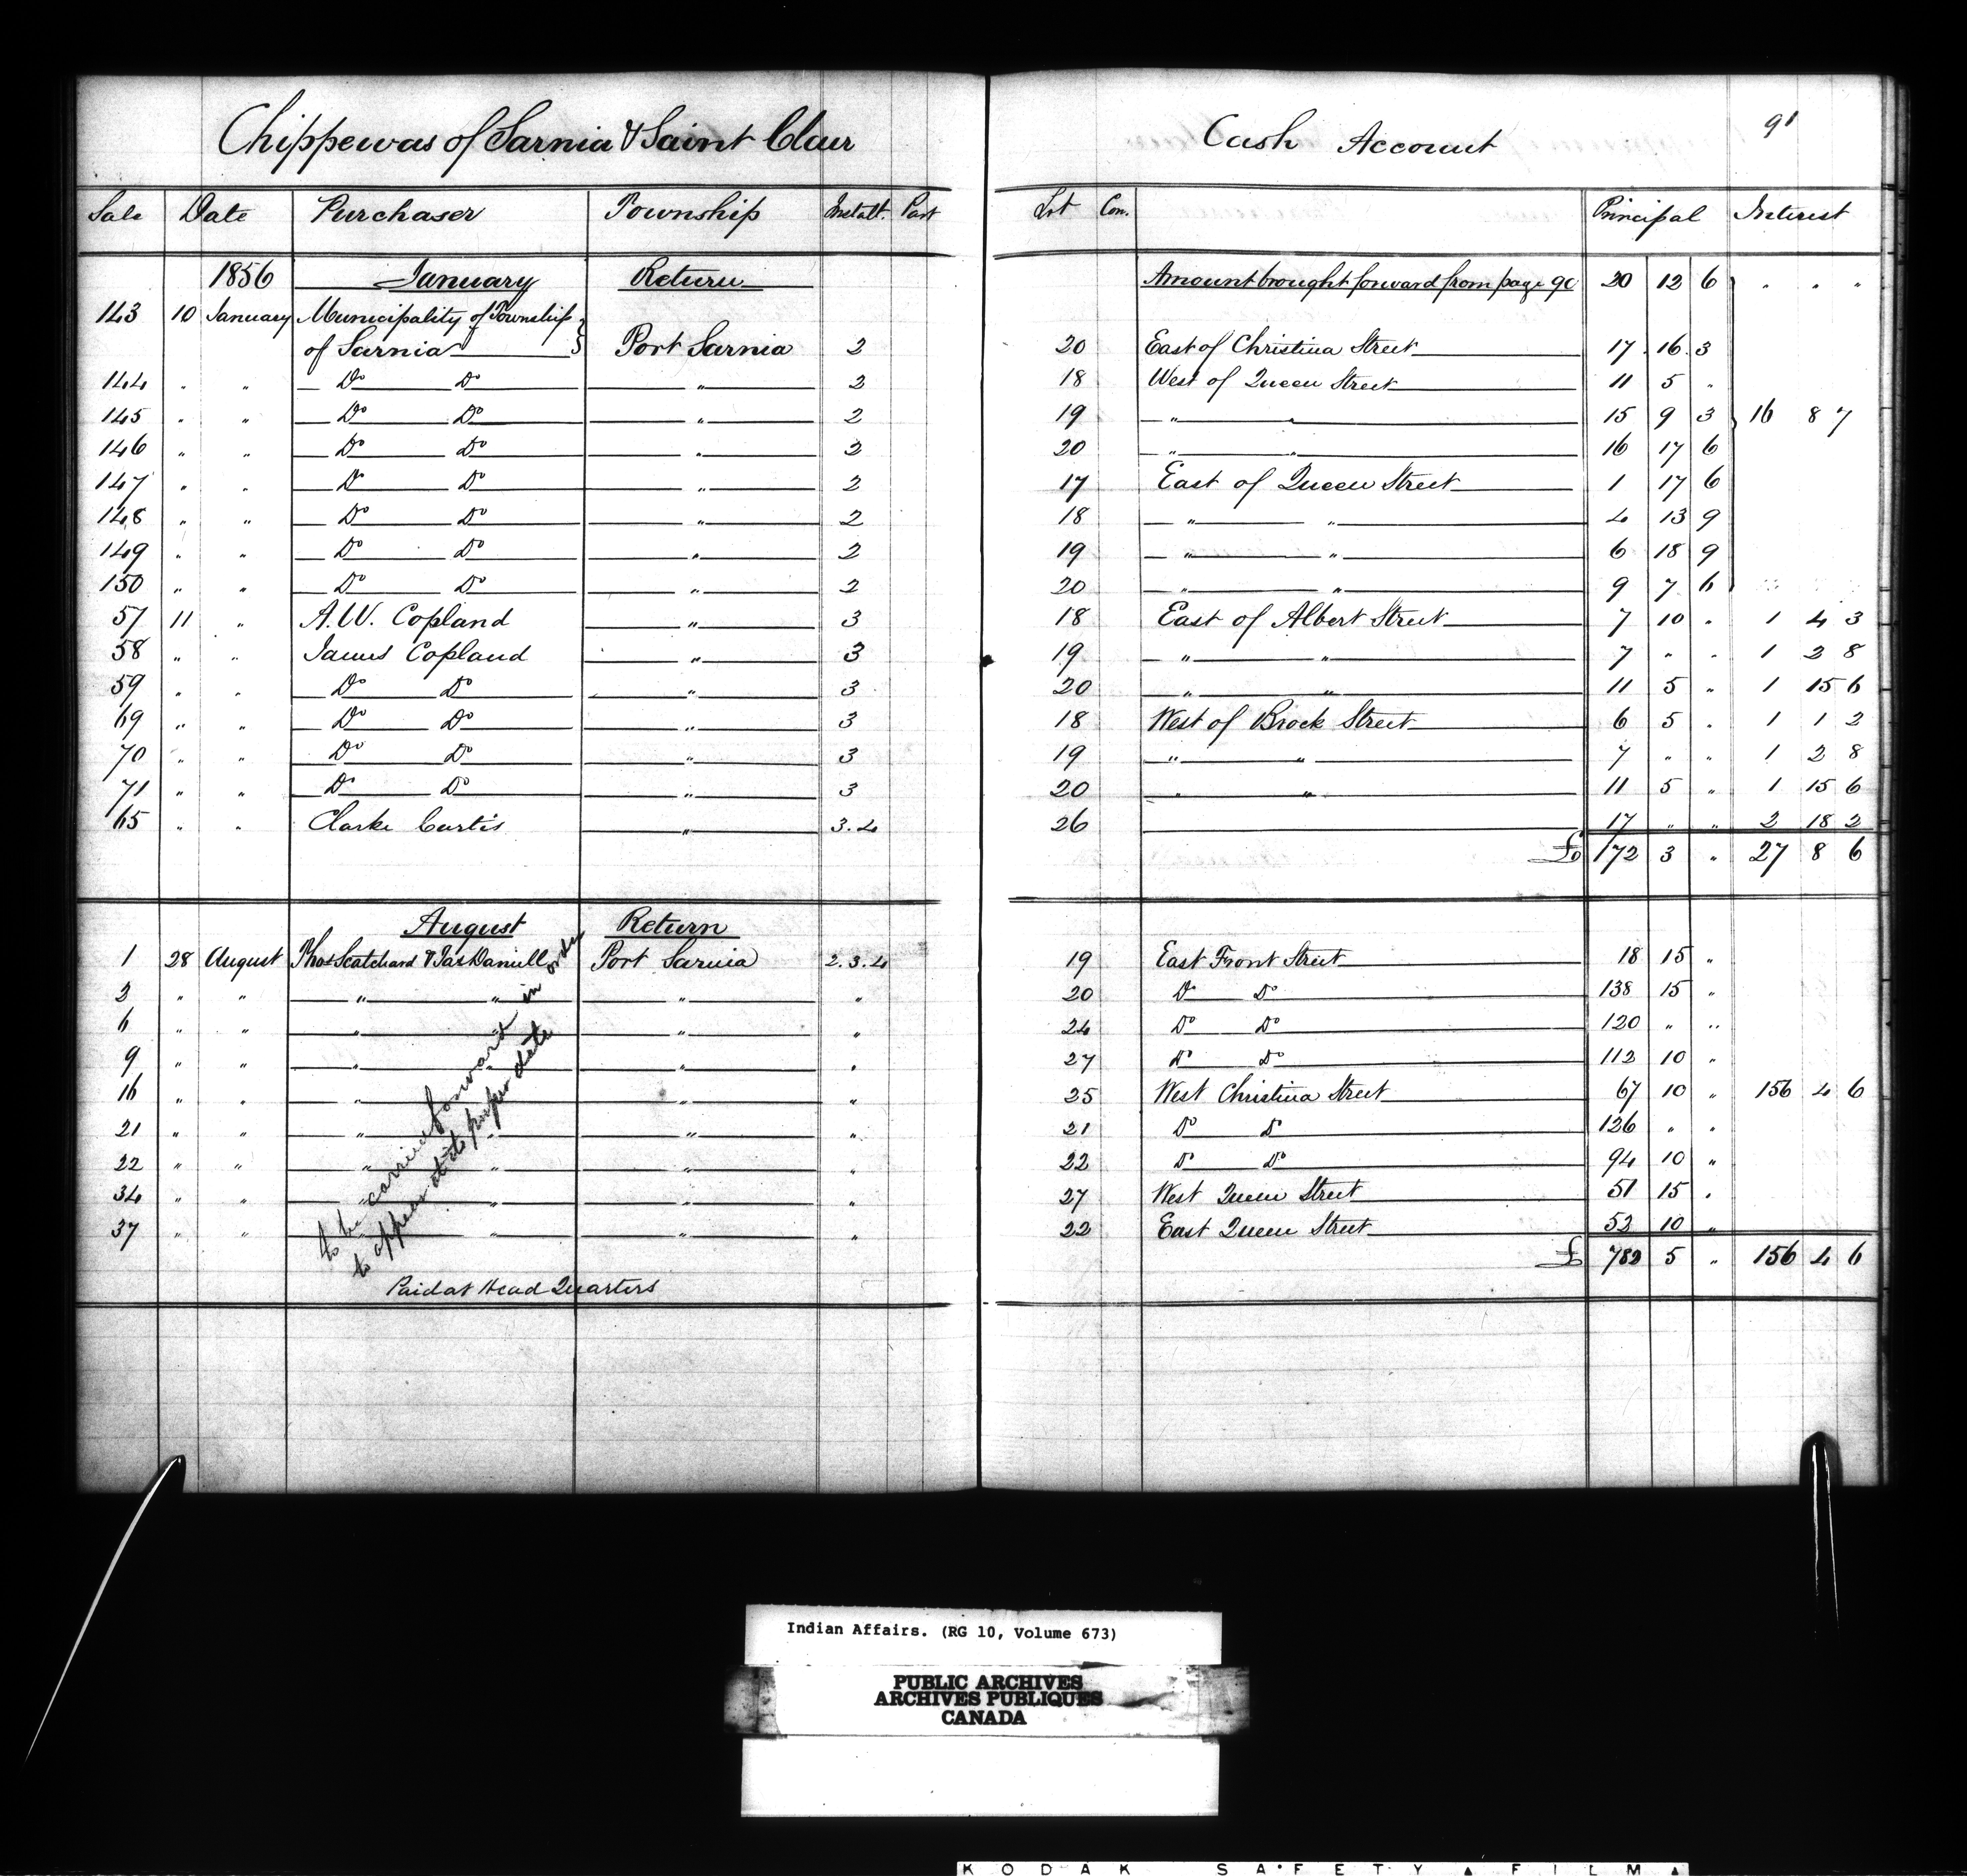 Chippewas of Sarnia & Saint Clair
Cash Account 91
Sale Date Purchaser Township Instalt. Part Lot Con. Principal Interest
1856 January Return Amount brought forward from page 90 20 12 6 " " "
143 10 January Municipality of Township
of Sarnia Port Sarnia 2 20 East of Christina Street 17 16 3
144 " " Do Do " 2 18 West of Queen Street 11 5 "
145 " " Do Do " 2 19 " " 15 9 3 16 8 7
146 " " Do Do " 2 20 " " 16 17 6
147 " " Do Do " 2 17 East of Queen Street 1 17 6
148 " " Do Do " 2 18 " " 4 13 9
149 " " Do Do " 2 19 " " 6 18 9
150 " " Do Do " 2 20 " " 9 7 6
57 11 " A.W. Copland " 3 18 East of Albert Street 7 10 " 1 4 3
58 " " James Copland " 3 19 " " 7 " " 1 2 8
59 " " Do Do " 3 20 " " 11 5 " 1 15 6
69 " " Do Do " 3 18 West of Brock Street 6 5 " 1 1 2
70 " " Do Do " 3 19 " " 7 " " 1 2 8
71 " " Do Do " 3 20 " " 11 5 " 1 15 6
65 " " Clarke Curtis " 3.4 26 17 " " 2 18 2
£ 172 3 " 27 8 6
August Return
1 28 August Thos Scatchard & Jas Daniell Port Sarnia 2.3.4 19 East Front Street 18 15 "
2 " " " " " " 20 Do Do 138 15 "
6 " " " " " " 24 Do Do 120 " "
9 " " " " " " 27 Do Do 112 10 "
16 " " " " " " 25 West Christina Street 67 10 " 156 4 6
21 " " " " " " 21 Do Do 126 " "
22 " " " " " " 22 Do Do 94 10 "
34 " " " " " " 27 West Queen Street 51 15 "
37 " " " " " " 22 East Queen Street 52 10 "
£ 782 5 " 156 4 6
to be carried forward in order
to appear at its proper date
Paid at Head Quarters
Indian Affairs. (RG 10, Volume 673)
PUBLIC ARCHIVES
ARCHIVES PUBLIQUES
CANADA
KODAK SAFETY FILM